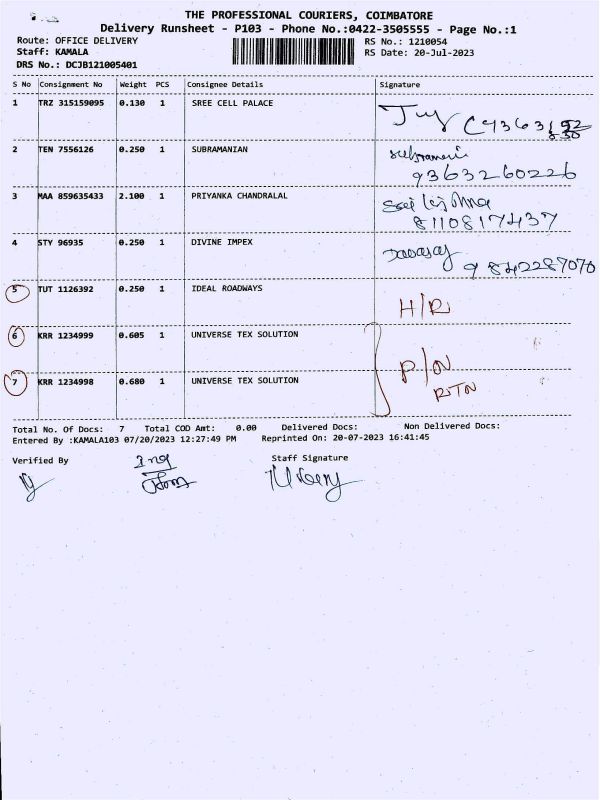 THE PROFESSIONAL COURIERS, COIMBATORE
Delivery Runsheet - P103 - Phone No.:0422-3505555 - Page No.:1
Route: OFFICE DELIVERY RS No.: 1210054
Staff: KAMALA RS Date: 20-Jul-2023
DRS No.: DCJB121005401
S No Consignment No Weight PCS Consignee Details Signature
1 TRZ 315159095 0.130 1 SREE CELL PALACE
2 TEN 7556126 0.250 1 SUBRAMANIAN
9363260226
3 MAA 859635433 2.100 1 PRIYANKA CHANDRALAL
8110817437
4 STY 96935 0.250 1 DIVINE IMPEX
9842287070
5 TUT 1126392 0.250 1 IDEAL ROADWAYS
H/R
6 KRR 1234999 0.605 1 UNIVERSE TEX SOLUTION
P/N
7 KRR 1234998 0.680 1 UNIVERSE TEX SOLUTION
RTN
Total No. Of Docs: 7 Total COD Amt: 0.00 Delivered Docs: Non Delivered Docs:
Entered By :KAMALA103 07/20/2023 12:27:49 PM Reprinted On: 20-07-2023 16:41:45
Verified By Staff Signature